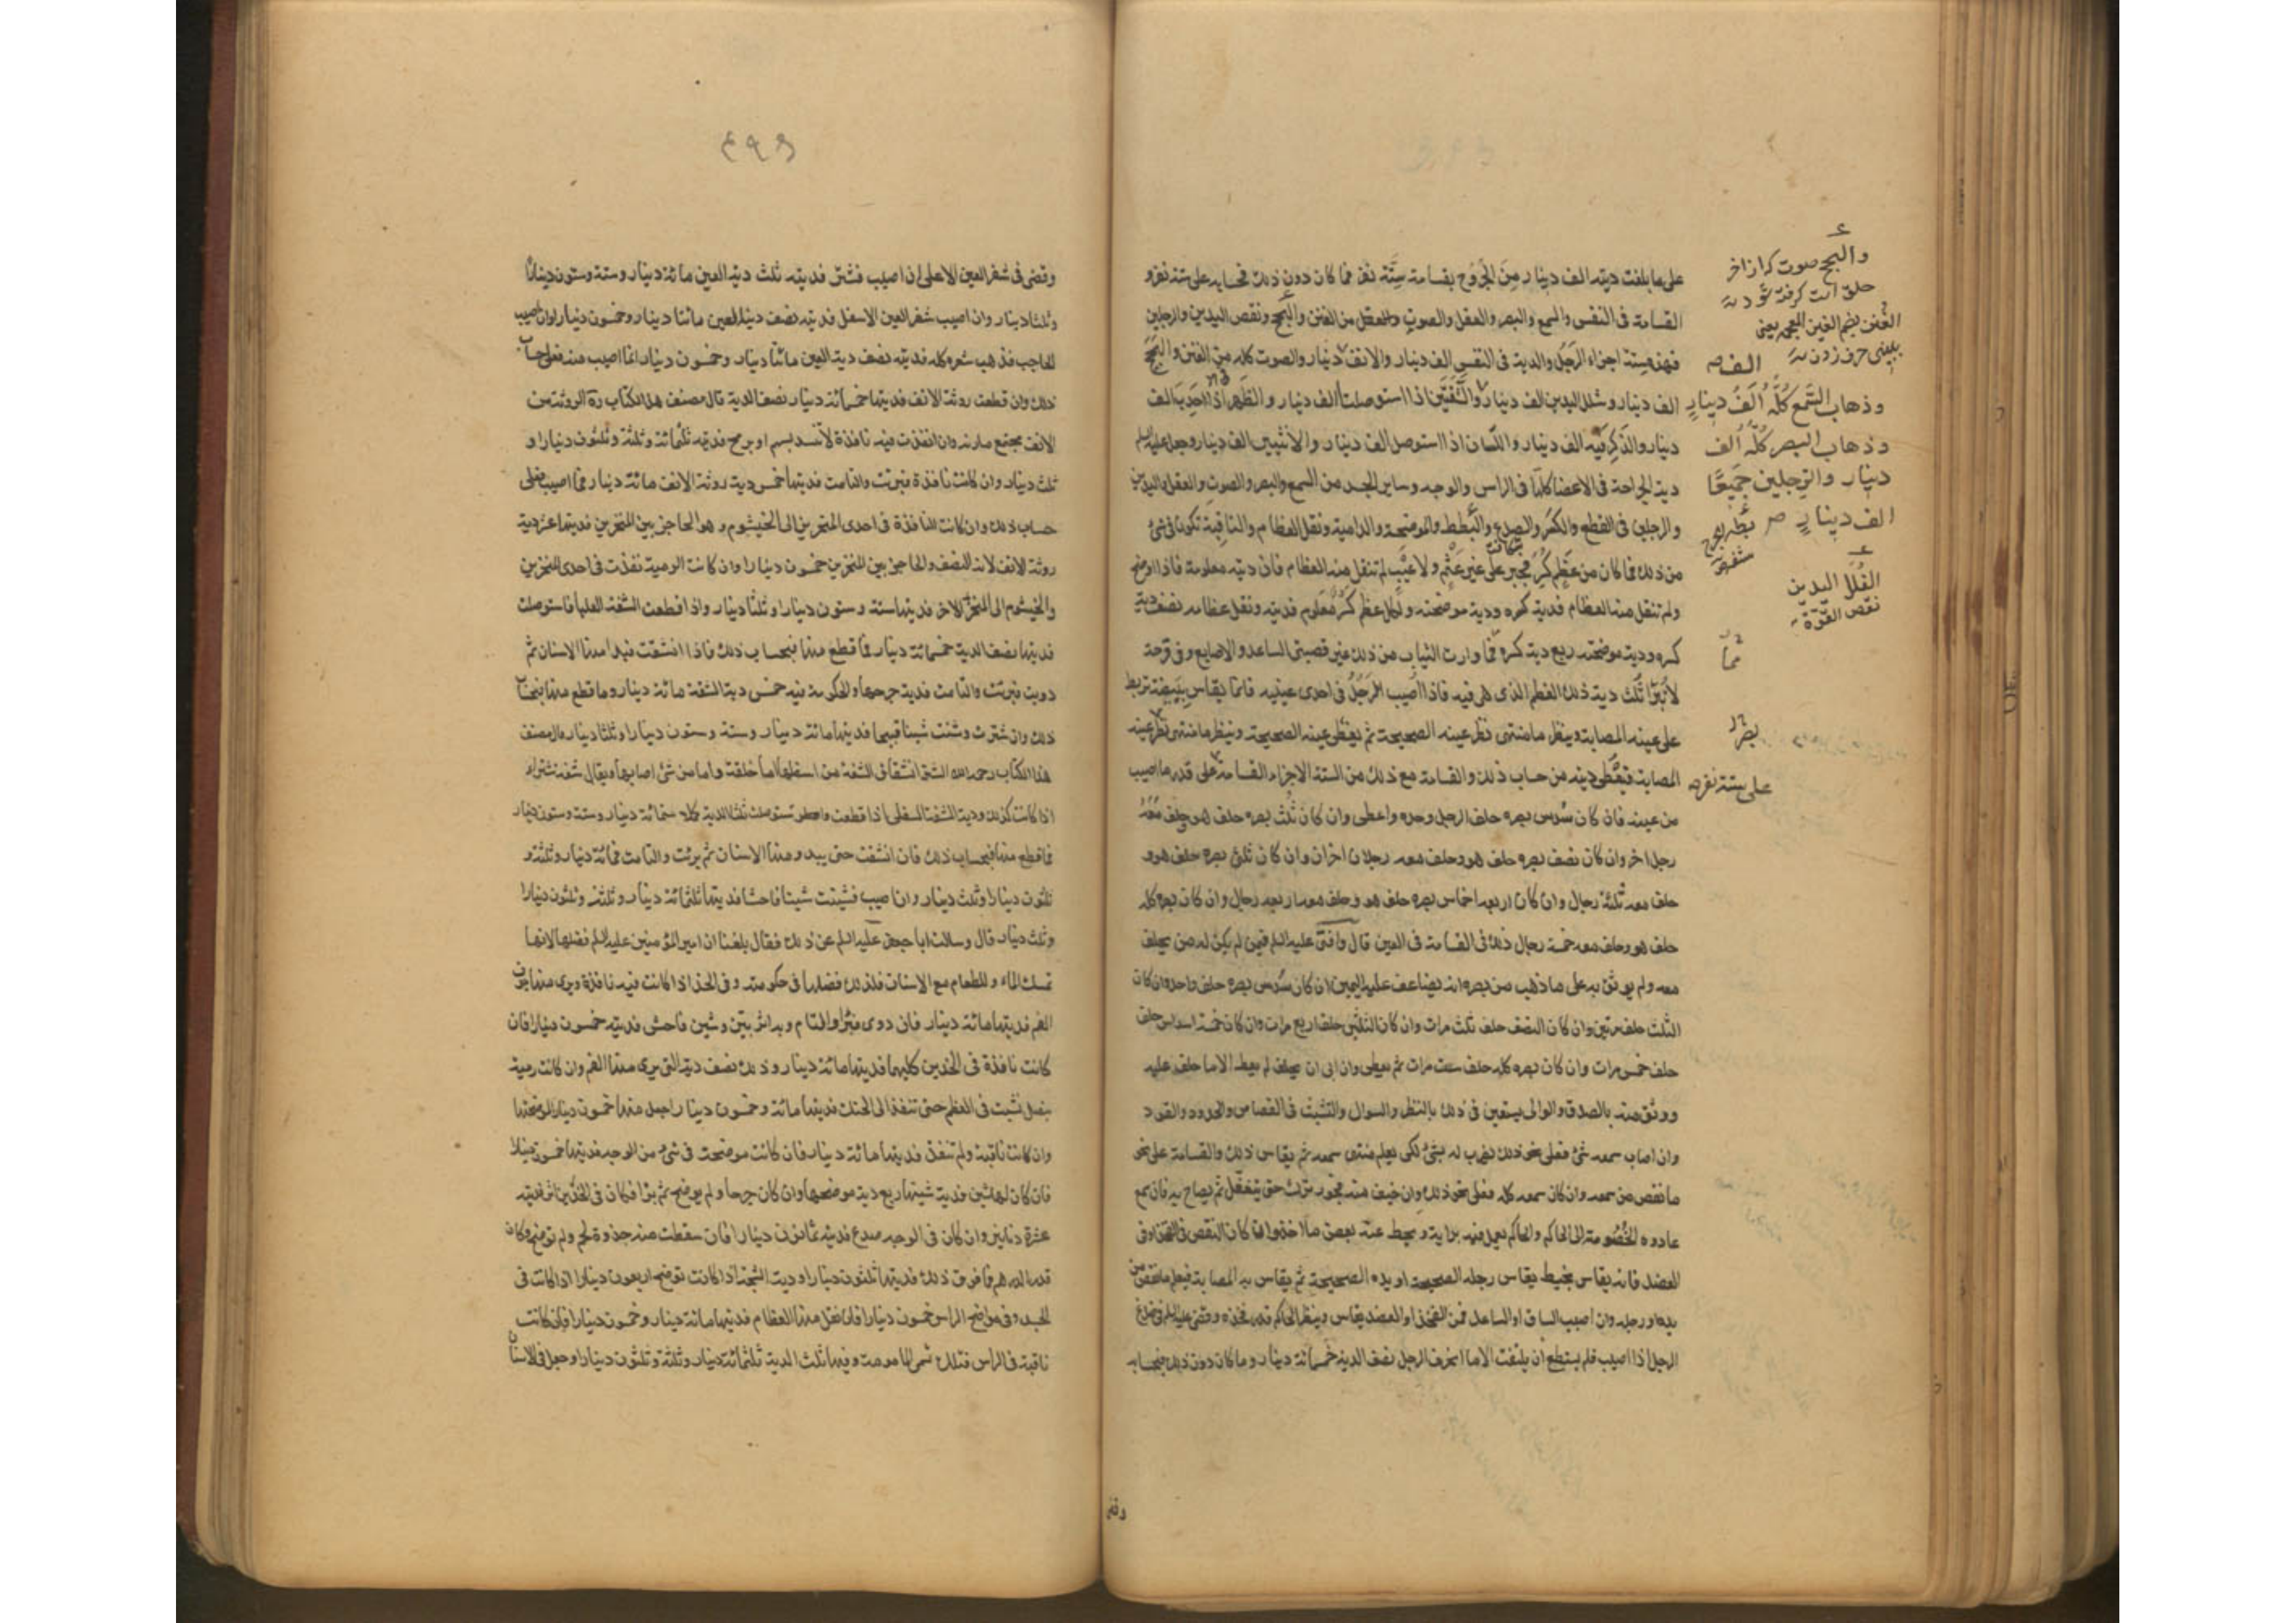 على ما بلغت ديته الف دينار من الجروح بقسامة ستة نفر فما كان دون ذلك فحسابه على ستة نفر و
القسامة فى النفس والسمع والبصر والعقل والصوت من الغنن والبحح ونقص اليدين والرجلين
فهذه ستة اجزاء الرجل والدية فى النفس الف دينار والانف دينار والصوت كله من الغنن والبحح
الف دينار وشلل اليدين الف دينار والشفتين اذا استوصلتا الف دينار والظهر اذا احدب الف
دينار والذكر فيه الف دينار واللسان اذا استوصل الف دينار والانثيين الف دينار وجعل عليه السلم
دية الجراحة فى الاعضا كلها فى الراس والوجه وساير الجسد من السمع والبصر والصوت والعقل واليدين
والرجلين فى القطع والكسر والصدع والبطط والموضحة والدامية ونقل العظام والناقبة تكون فى شئ
من ذلك فما كان من عظم كسر فجبر على غير عثم ولا عيب لم تنقل منه العظام فان ديته معلومة فاذا اوضح
ولم تنقل منه العظام فدية كسره ودية موضحته ولكل عظم كسر معلوم فديته ونقل عظامه نصف دية
كسره ودية موضحته ربع دية كسره فما وارت الثياب من ذلك غير قصبتى الساعد والاصابع وفى قرحة
لا تبرأ ثلث دية ذلك العظم الذى هى فيه فاذا اصيب الرجل فى احدى عينيه فانما يقاس ببيضة تربط
على عينه المصابة وينظر ما منتهى نظر عينه الصحيحة ثم يغطى عينه الصحيحة وينظر ما منتهى نظر عينه
المصابة فيعطى ديته من حساب ذلك والقسامة مع ذلك من الستة الاجزاء القسامة على قدر ما اصيب
من عينه فان كان سدس بصره حلف الرجل وحده واعطى وان كان ثلث بصره حلف هو وحلف معه
رجل اخر وان كان نصف بصره حلف هو وحلف معه رجلان اخران وان كان ثلثى بصره حلف هو و
حلف معه ثلثة رجال وان كان اربعة اخماس بصره حلف هو وحلف معه اربعة رجال وان كان بصره كله
حلف هو وحلف معه خمسة رجال ذلك فى القسامة فى العين قال وافتى عليه السلم فيمن لم يكن له من يحلف
معه ولم يوثق به على ما ذهب من بصره انه يضاعف عليه اليمين ان كان سدس بصره حلف واحدة وان كان
الثلث حلف مرتين وان كان النصف حلف ثلث مرات وان كان الثلثين حلف اربع مرات وان كان خمسة اسداس حلف
حلف خمس مرات وان كان بصره كله حلف ست مرات ثم يعطى وان ابى ان يحلف لم يعط الا ما حلف عليه
ووثق منه بالصدق والوالى يستعين فى ذلك بالنظر والسوال والتثبت فى القصاص والحدود والقود
وان اصاب سمعه شئ فعلى نحو ذلك يضرب له بشئ لكى يعلم منتهى سمعه ثم يقاس ذلك والقسامة على نحو
ما نقص من سمعه وان كان سمعه كله فعلى نحو ذلك وان خيف منه فجور ترك حتى يتغفل ثم يصاح به فان سمع
عاوده الخصومة الى الحاكم والحاكم يعمل فيه برايه ويحط عنه بعض ما اخذ وان كان النقص فى الفخذ او فى
العضد فانه يقاس بخيط يقاس رجله الصحيحة او يده الصحيحة ثم يقاس به المصابة فيعلم ما نقص من
يده او رجله وان اصيب الساق او الساعد فمن الفخذ او العضد يقاس وينظر الحاكم قدر فخذه وقضى عليه السلم فى صدغ
الرجل اذا اصيب فلم يستطع ان يلتفت الا ما انحرف الرجل نصف الدية خمسمائة دينار وما كان دون ذلك فبحسابه
والبحح صوت كه از اخر
حلق است كرفته شود
الغنن بضم الغين المعجمة يعنى
ببينى حرف زدن
الف ص
وذهاب السمع كله الف دينار
وذهاب البصر كله الف
دينار والرجلين جميعا
الف دينار ص
الشلل اليدين
نقص القوة
فما
بصر
على ستة نفر ص
وقضى
وقضى فى شفر العين الاعلى ان اصيب فشتر فديته ثلث دية العين مائة دينار وستة وستون دينارا
وثلثا دينار وان اصيب شفر العين الاسفل فديته نصف دية العين مائتا دينار وخمسون دينارا وان اصيب
الحاجب فذهب شعره كله فديته نصف دية العين مائتا دينار وخمسون دينارا فما اصيب منه فعلى حساب
ذلك وان قطعت روثة الانف فديتها خمسمائة دينار نصف الدية قال مصنف هذا الكتاب ره الروثة من
الانف مجتمع مارنه وان انفذت فيه نافذة لا تنسد بسهم او برمح فديته ثلثمائة وثلثة وثلثون دينارا و
ثلث دينار وان كانت نافذة فبرئت والتامت فديتها خمس دية روثة الانف مائة دينار فما اصيب فعلى
حساب ذلك وان كانت النافذة فى احدى المنخرين الى الخيشوم وهو الحاجز بين المنخرين فديتها عشر دية
روثة الانف لانه النصف والحاجز بين المنخرين خمسون دينارا وان كانت الرمية نفذت فى احدى المنخرين
والخيشوم الى المنخر الاخر فديتها ستة وستون دينارا وثلثا دينار واذا قطعت الشفة العليا فاستوصلت
فديتها نصف الدية خمسمائة دينار فما قطع منها فبحساب ذلك فاذا انشقت فبدا منها الاسنان ثم
دويت فبرئت والتامت فدية جرحها والحكومة فيه خمس دية الشفة مائة دينار وما قطع منها فبحساب
ذلك وان شترت وشنت شينا قبيحا فديتها مائة دينار وستة وستون دينارا وثلثا دينار قال مصنف
هذا الكتاب رحمه الله الشتر انشقاق الشفة من اسفلها اما خلقة واما من شئ اصابها ويقال شفة شتراء
اذا كانت كذلك ودية الشفة السفلى اذا قطعت واستوصلت ثلثا الدية كلا ستمائة دينار وستة وستون دينار
فما قطع منها فبحساب ذلك فان انشقت حتى يبدو منها الاسنان ثم برئت والتامت فمائة دينار وثلثة و
ثلثون دينارا وثلث دينار وان اصيب فشينت شينا فاحشا فديتها ثلثمائة دينار وثلثة وثلثون دينارا
وثلث دينار قال وسالت ابا جعفر عليه السلم عن ذلك فقال بلغنا ان امير المؤمنين عليه السلم فضلها لانها
تمسك الماء والطعام مع الاسنان فلذلك فضلها فى حكومته وفى الخد اذا كانت فيه نافذة ويرى منها جوف
الفم فديتها مائة دينار فان دوى فبرأ والتام وبه اثر بين وشين فاحش فديته خمسون دينارا فان
كانت نافذة فى الخدين كليهما فديتها مائة دينار وذلك نصف دية التى يرى منها الفم وان كانت رمية
بنصل نشبت فى العظم حتى تنفذ الى الحنك فديتها مائة وخمسون دينارا جعل منها خمسون دينارا لموضحتها
وان كانت ناقبة ولم تنفذ فديتها مائة دينار فان كانت موضحة فى شئ من الوجه فديتها خمسون دينارا
فان كان لها شين فدية شينها ربع دية موضحها وان كان جرحا ولم يوضح ثم برا وكان فى الخدين اثر فديته
عشرة دنانير وان كان فى الوجه صدع فديته ثمانون دينارا فان سقطت منه جذوة لحم ولم توضح وكان
قدر الدرهم فما فوق ذلك فديتها ثلثون دينارا ودية الشجة اذا كانت توضح اربعون دينارا اذا كانت فى
الجسد وفى مواضح الراس خمسون دينارا فان نقل منها العظام فديتها مائة دينار وخمسون دينارا فان كانت
ناقبة فى الراس فتلك تسمى المامومة وفيها ثلث الدية ثلثمائة دينار وثلثة وثلثون دينارا وجعل فى الاسنان